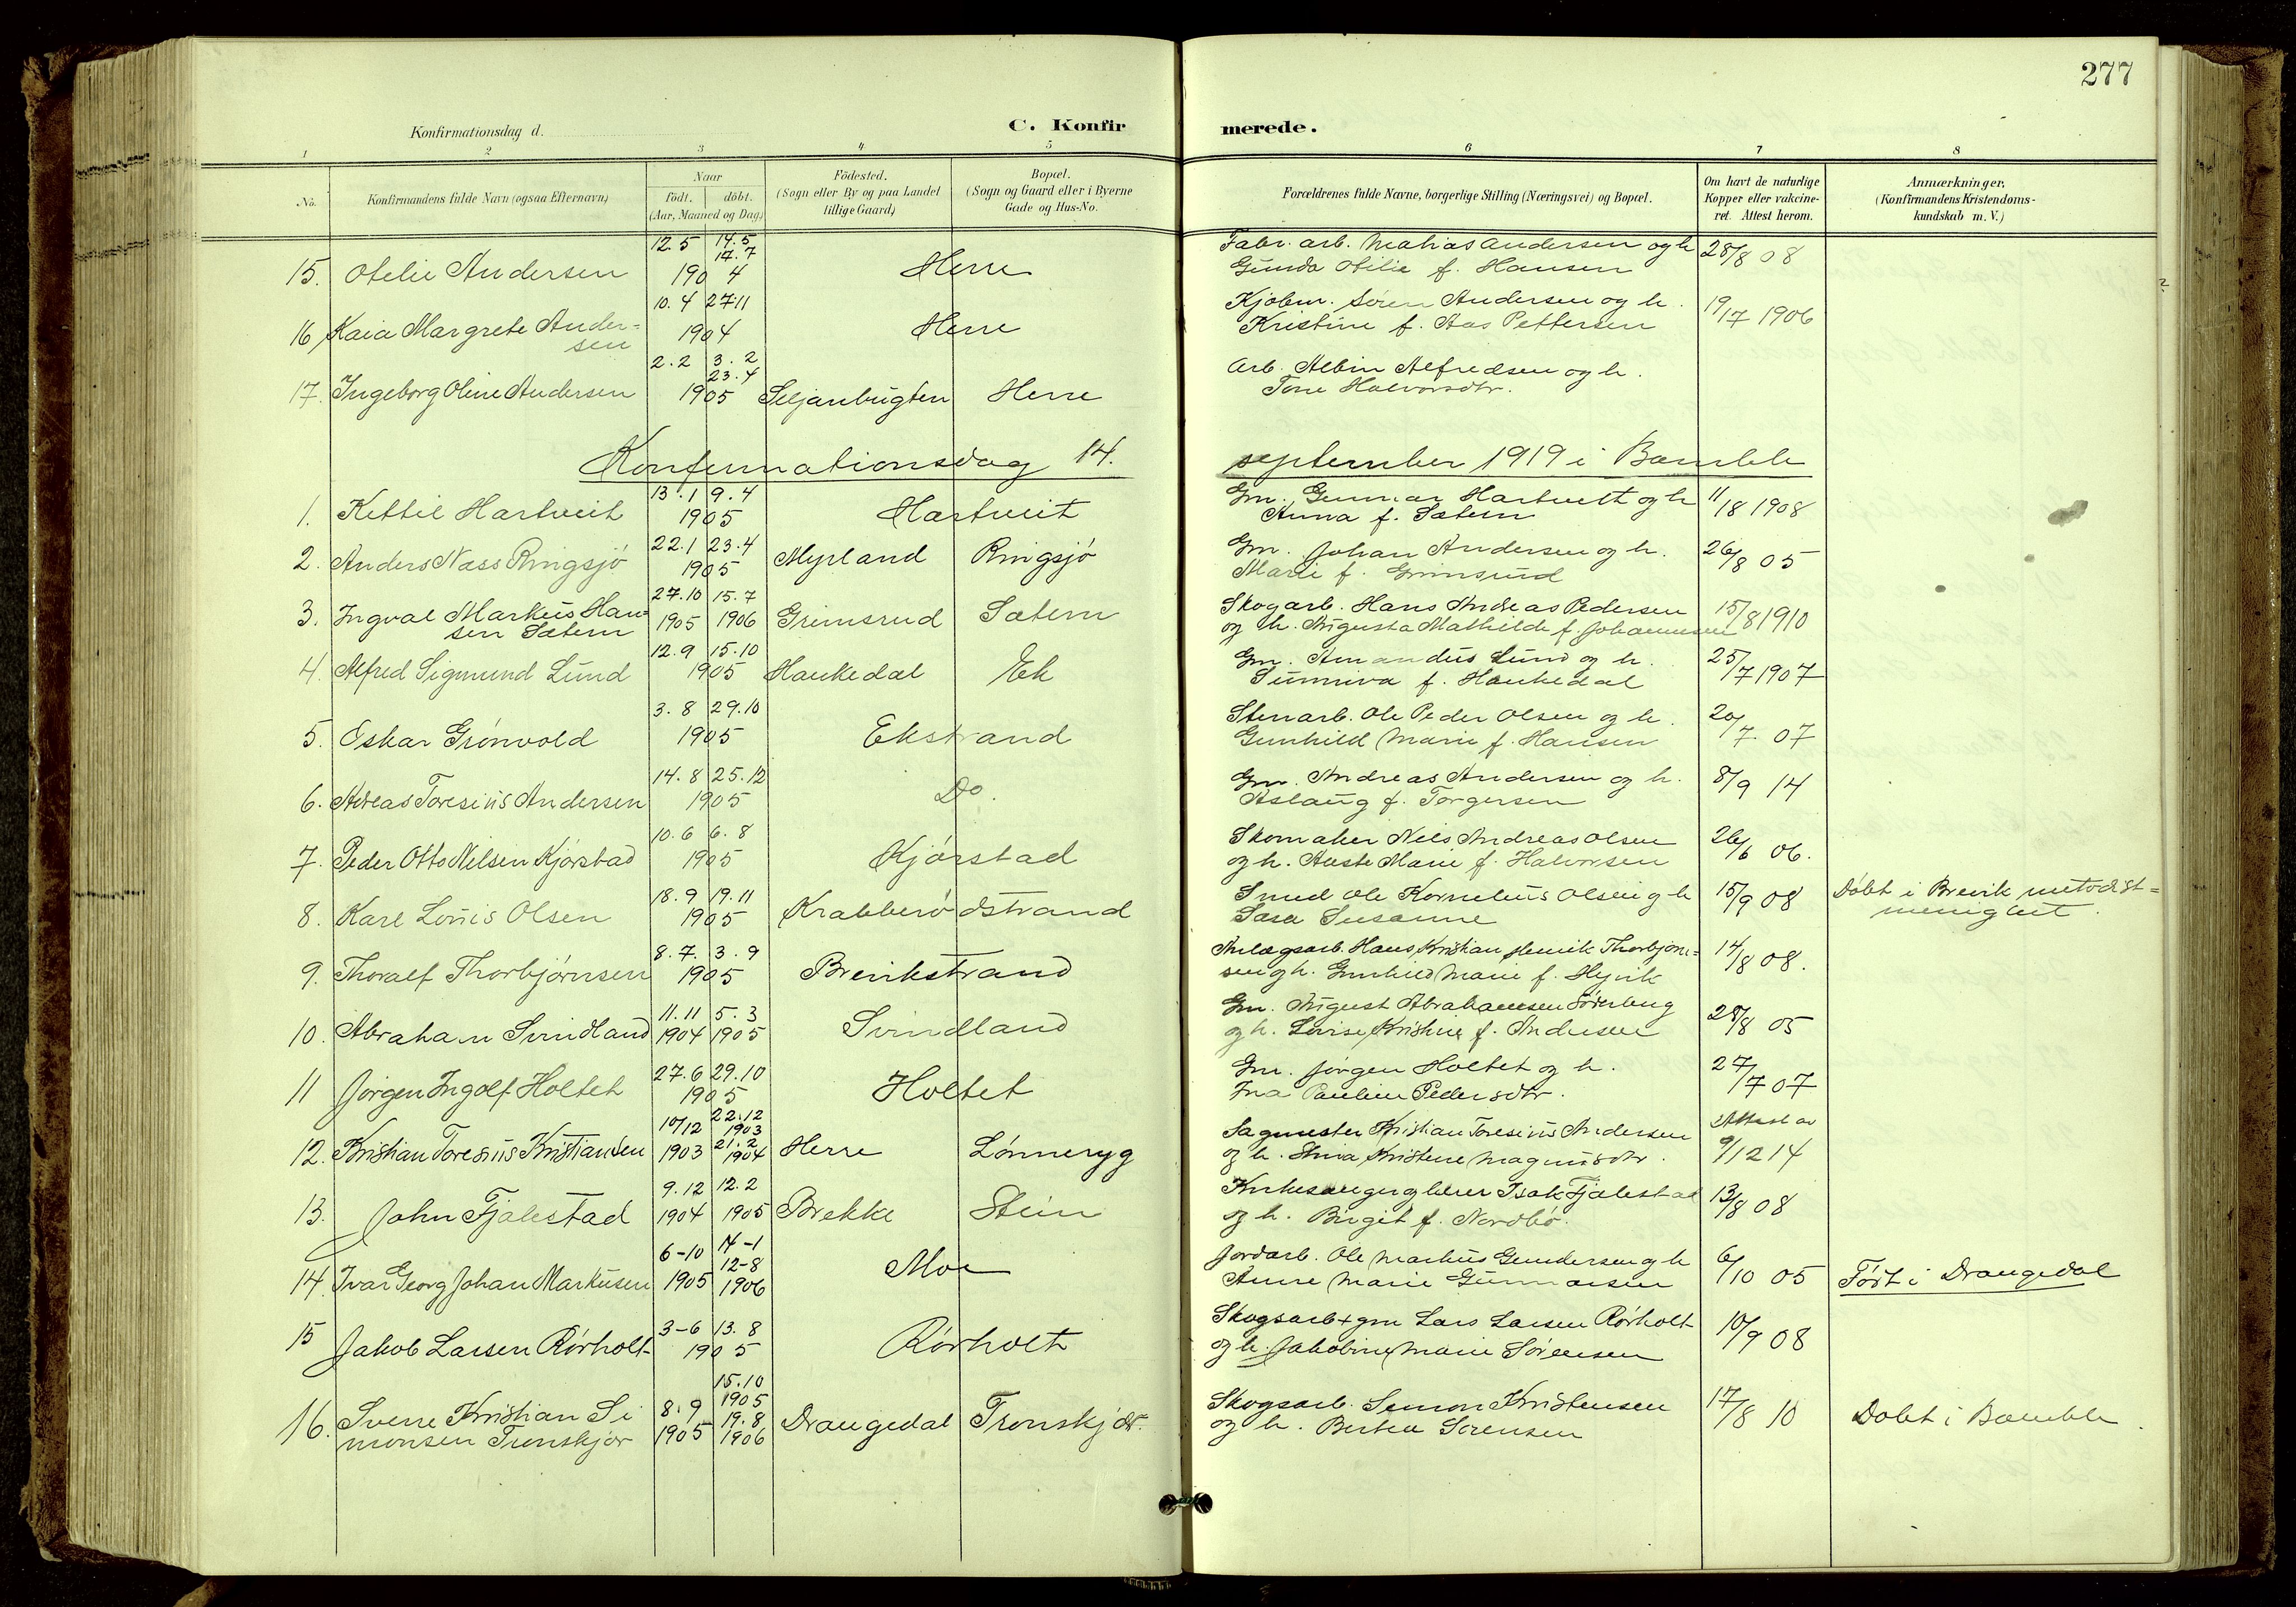 277
Konfirmationsdag d.
C. Konfir merede.
1 2 3 4 5 6 7 8
No.
Konfirmandens fulde Navn (ogsaa Efternavn)
Naar
födt. döbt.
(Aar, Maaned og Dag)
Födested.
(Sogn eller By og paa Landet
tillige Gaard)
Bopæl.
(Sogn og Gaard eller i Byerne
Gade og Hus-No.
Forældrenes fulde Navne, borgerlige Stilling (Næringsvei) og Bopæl.
Om havt de naturlige
Kopper eller vakcine-
ret. Attest herom.
Anmærkninger.
(Konfirmandens Kristendoms-
kundskab m. V.)
12.5 14.5 Fabr. arb. Mathias Andersen og h
17.7
15. Otelie Andersen 1904 Herre Gunda Otilie f. Hansen 28/8 08
10.4 27.11 Kjøbm. Søren Andersen og h.
16 Kaia Margrete Ander= 1904 Herre Kristine f. Aas Pettersen 19/7 1906
sen
2.2 3.2 Arb. Albin Alfredsen og h.
23.4
17. Ingeborg Oline Andersen 1905 Seljanbugten Herre Tone Halvorsdtr.
Konfirmationsdag 14. september 1919 i Bamble
13.1 9.4 Gm. Gunnar Hartveit og h
1. Kettil Hartveit 1905 Hartveit Anna f. Sætern 11/8 1908
22.1 23.4 Gm. Johan Andersen og h.
2. Anders Næss Ringsjö 1905 Myrland Ringsjö Marie f. Grimsrud 26/8 05
27.10 15.7 Skogarb. Hans Andreas Pedersen
3. Ingval Markus Han= 1905 1906 Grimsrud Sætern og h. Augusta Mathilde f. Johannesen 15/8 1910
sen Sætern
12.9 15.10 Gm. Amandus Lund og h.
4. Alfred Sigmund Lund 1905 Haukedal Ek Sunniva f. Haukedal 25/7 1907
3.8 29.10 Stenarb. Ole Peder Olsen og h.
5. Oskar Grönvold 1905 Ekstrand Gunhild Marie f. Hansen 20/7. 07
14.8 25.12 Gm. Andreas Andersen og h.
6. Adreas Toresius Andersen 1905 Do. Aslaug f. Torgersen 8/9 14
10.6 6.8 Skomaker Nils Andreas Olsen
7. Peder Otto Nilsen Kjörstad 1905 Kjörstad og h. Aaste Marie f. Halvorsen 26/6 06.
18.9 19.11 Smed Ole Kornelius Olsen og h 15/9 08 Döbt i Brevik metodist=
8. Karl Louis Olsen 1905 Krabberödstrand Sara Susanne menighet.
8.7. 3.9 Anlægsarb. Hans Kristian Henrik Thorbjörn=
9. Thoralf Thorbjörnsen 1905 Brevikstrand sen og h. Gunhild Marie f. 14/8 08.
11.11 5.3 Gm. August Abrahamsen
10. Abraham Svindland 1904 1905 Svindland og h. Lovise Kristine f. Andersen 28/8 05
27.6 29.10 Gm. Jörgen Holtet og h.
11 Jörgen Ingolf Holtet 1905 Holtet Ina Pauline Pedersdtr. 27/7 07
10/12 22.12 1903 Sagmester Kristian Toresius Andersen Attest av
12. Kristian Toresius Kristiansen 1903 21.2 1904 Herre Lönneryg og h. Kristine Magnusdtr. 9/12 14
9.12 12.2 Kirkesanger og lærer Isak Fjalestad
13. John Fjalestad 1904 1905 Brekke Stein og h. Birgit f. Nordbö. 13/8 08
6-10 14-1 12-8 Jordarb. Ole Markus Gundersen og h
14. Ivar Georg Johan Markusen 1905 1906 Moe Anne Marie Gunnarsen 6/10 05 Födt i Drangedal
3-6 13.8 Skogsarb + gm Lars Larsen Rörholt
15 Jakob Larsen Rörholt 1905 Rörholt og h. Jakobine Marie Sörensen 10/9 08
8.9 15.10 1905 Skogsarb. Simon Kristensen
16. Sverre Kristian Si 1905 19.8 1906 Drangedal Tronskjær. og h. Berthea Sörensen 17/8 10 Döbt i Bamble.
monsen Tronskjær